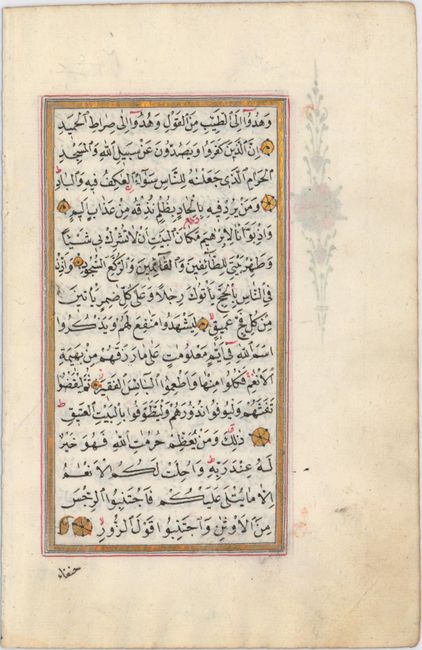 وَهُدُوٓا اِلَى الطَّيِّبِ مِنَ الْقَوْلِ وَهُدُوٓا اِلٰى صِرَاطِ الْحَمِيدِ
اِنَّ الَّذِينَ كَفَرُوا وَيَصُدُّونَ عَنْ سَبِيلِ اللّٰهِ وَالْمَسْجِدِ
الْحَرَامِ الَّذِى جَعَلْنَاهُ لِلنَّاسِ سَوَآءً اۨلْعَاكِفُ فِيهِ وَالْبَادِ
وَمَنْ يُرِدْ فِيهِ بِاِلْحَادٍ بِظُلْمٍ نُذِقْهُ مِنْ عَذَابٍ اَلِيمٍ
وَاِذْ بَوَّاْنَا لِاِبْرٰهِيمَ مَكَانَ الْبَيْتِ اَنْ لَا تُشْرِكْ بِى شَيْئًا
وَطَهِّرْ بَيْتِىَ لِلطَّآئِفِينَ وَالْقَآئِمِينَ وَالرُّكَّعِ السُّجُودِ وَاَذِّنْ
فِى النَّاسِ بِالْحَجِّ يَاْتُوكَ رِجَالًا وَعَلٰى كُلِّ ضَامِرٍ يَاْتِينَ
مِنْ كُلِّ فَجٍّ عَمِيقٍ لِيَشْهَدُوا مَنَافِعَ لَهُمْ وَيَذْكُرُوا
اسْمَ اللّٰهِ فِٓى اَيَّامٍ مَعْلُومَاتٍ عَلٰى مَا رَزَقَهُمْ مِنْ بَهِيمَةِ
الْاَنْعَامِ فَكُلُوا مِنْهَا وَاَطْعِمُوا الْبَآئِسَ الْفَقِيرَ ثُمَّ لْيَقْضُوا
تَفَثَهُمْ وَلْيُوفُوا نُذُورَهُمْ وَلْيَطَّوَّفُوا بِالْبَيْتِ الْعَتِيقِ
ذٰلِكَ وَمَنْ يُعَظِّمْ حُرُمَاتِ اللّٰهِ فَهُوَ خَيْرٌ
لَهُ عِنْدَ رَبِّهِ وَاُحِلَّتْ لَكُمُ الْاَنْعَامُ
اِلَّا مَا يُتْلٰى عَلَيْكُمْ فَاجْتَنِبُوا الرِّجْسَ
مِنَ الْاَوْثَانِ وَاجْتَنِبُوا قَوْلَ الزُّورِ
حنفاء